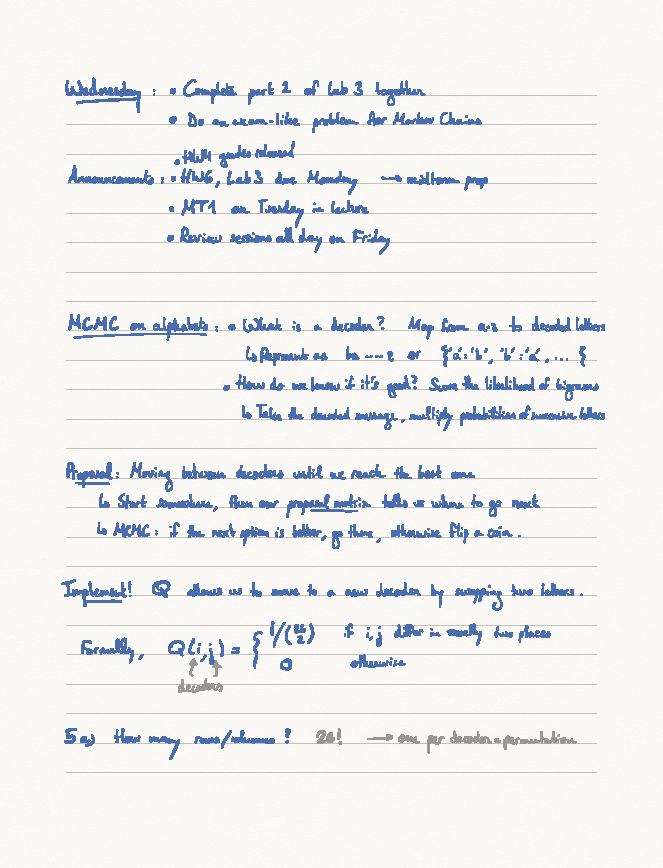 Wednesday : • Complete part 2 of Lab 3 together
• Do an exam-like problem for Markov Chains
• HW4 grades released
Announcements : • HW6, Lab 3 due Monday → midterm prep
• MT1 on Tuesday in lecture
• Review sessions all day on Friday
MCMC on alphabets : • What is a decoder? Map from a-z to decoded letters
↳ Represent as ba ---- z or {'a':'b', 'b':'a', ... {
• How do we know if it's good? Score the likelihood of bigrams
↳ Take the decoded message, multiply probabilities of successive letters
Proposal : Moving between decoders until we reach the best one
↳ Start somewhere, then our proposal matrix tells us where to go next
↳ MCMC : if the next option is better, go there, otherwise flip a coin .
Implement! Q allows us to move to a new decoder by swapping two letters .
Formally, Q(i,j) = { 1/(26 2) if i,j differ in exactly two places
0 otherwise
decoders
5 a) How many rows/columns ? 26! → one per decoder = permutation